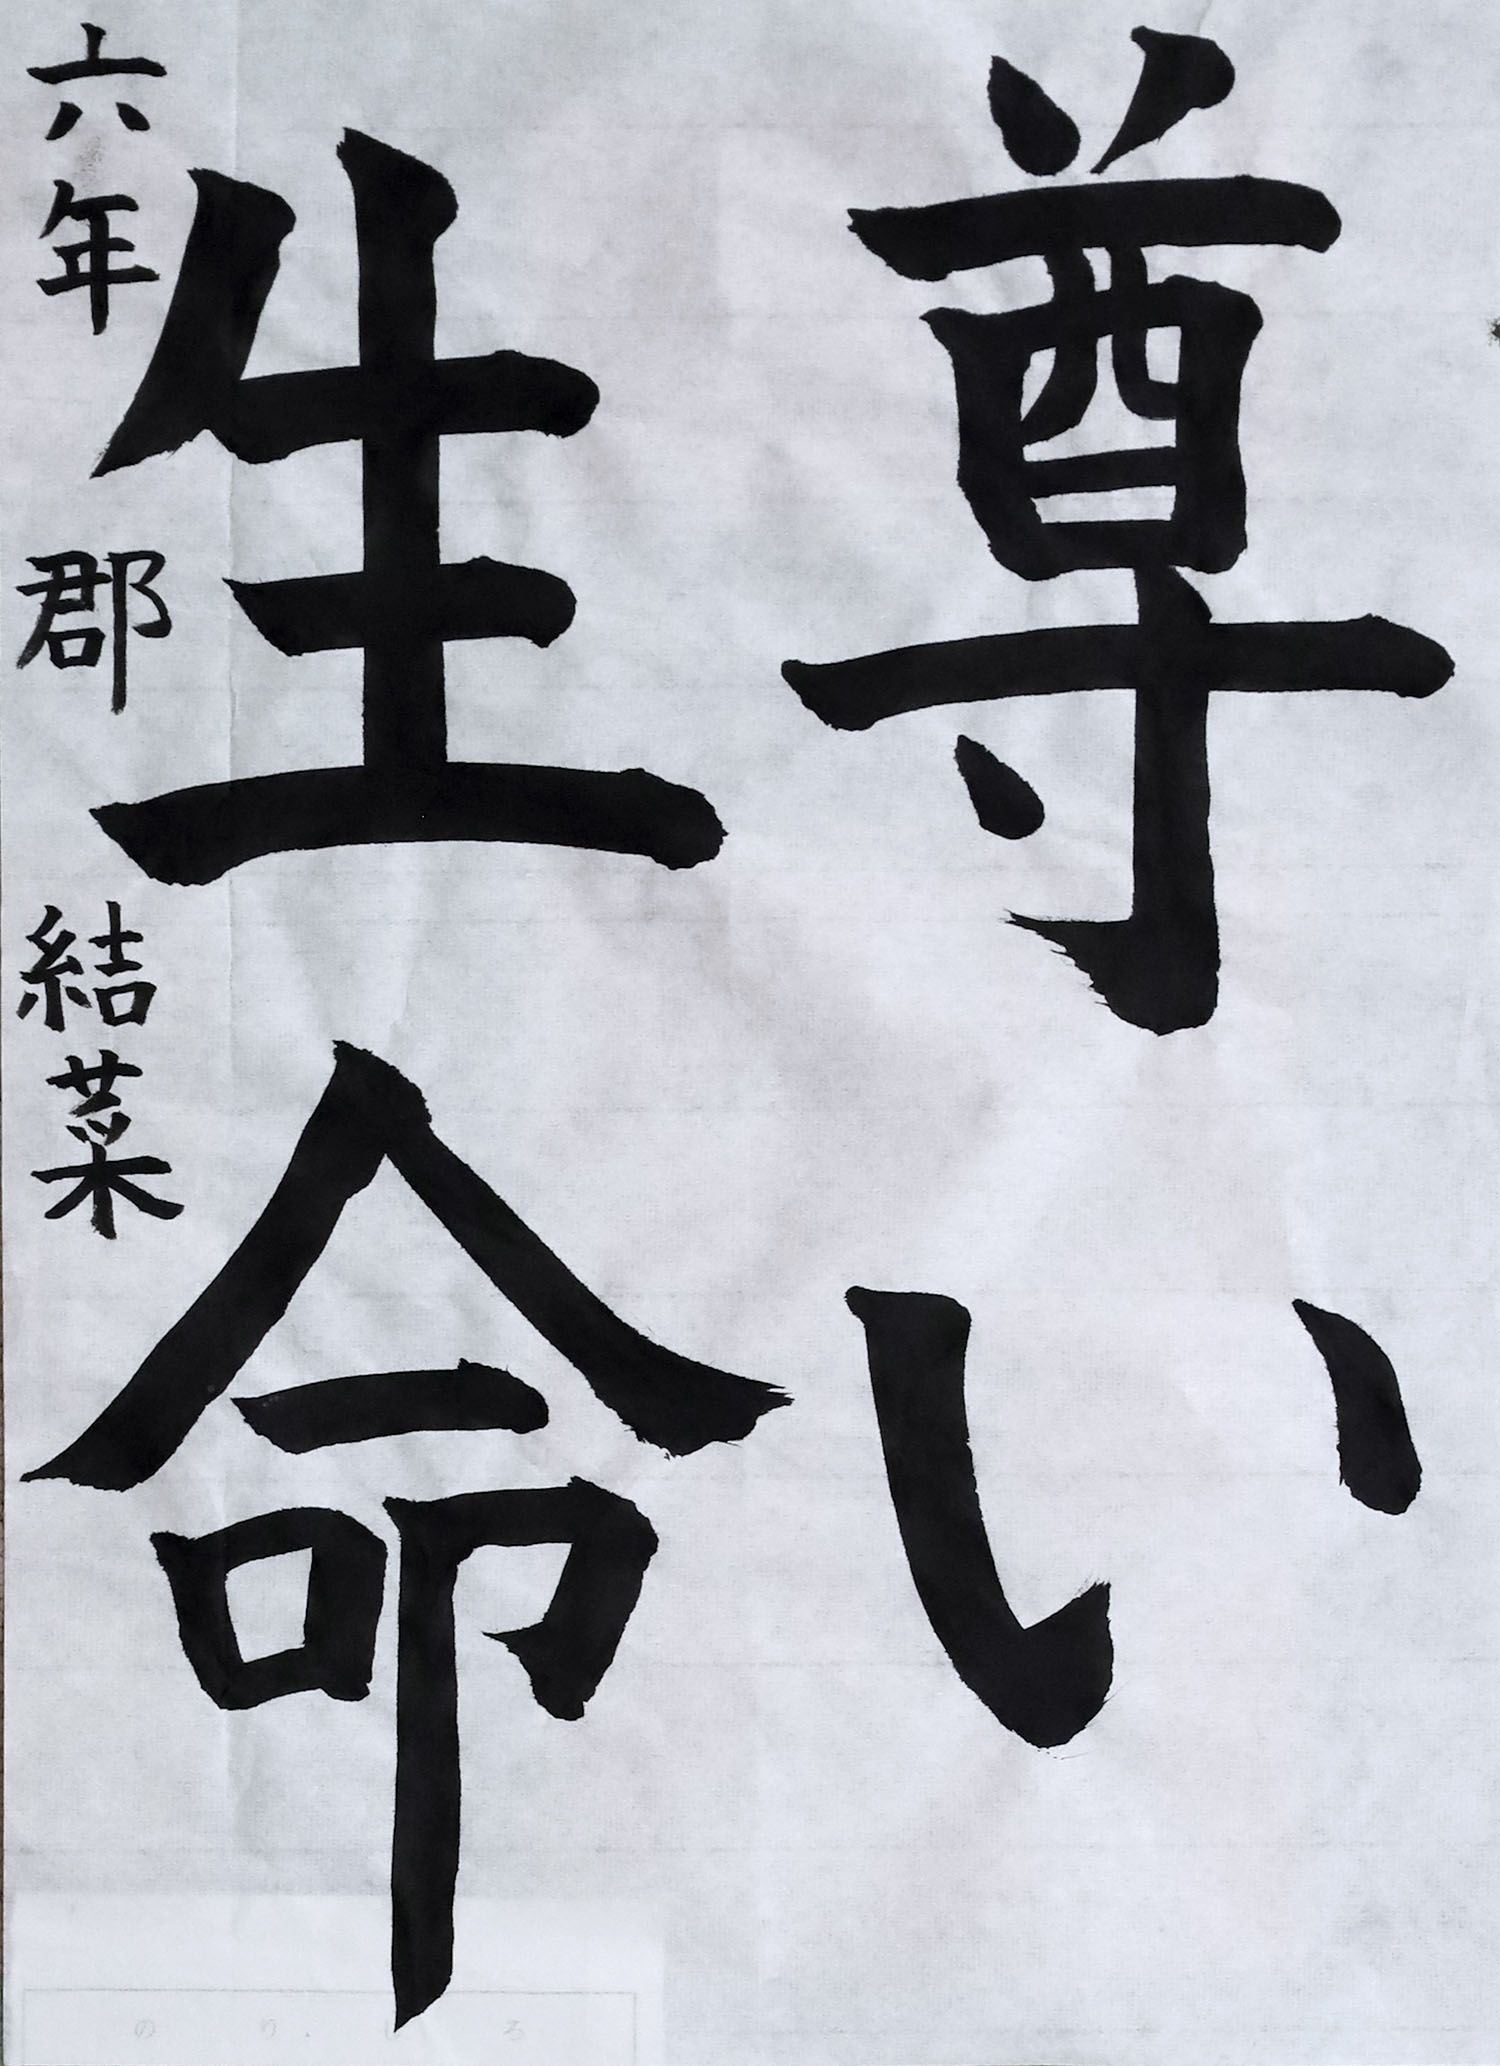 尊い
生命
六年 郡 結菜
のりしろ